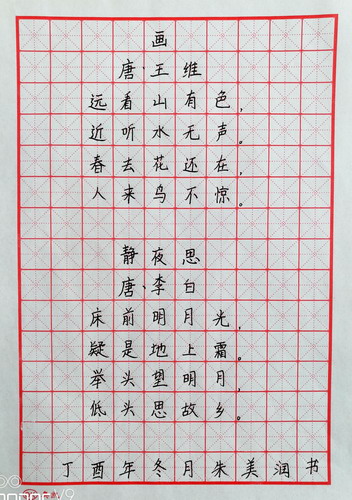 画
唐·王维
远看山有色,
近听水无声。
春去花还在,
人来鸟不惊。
静夜思
唐·李白
床前明月光,
疑是地上霜。
举头望明月,
低头思故乡。
丁酉年冬月朱美润书